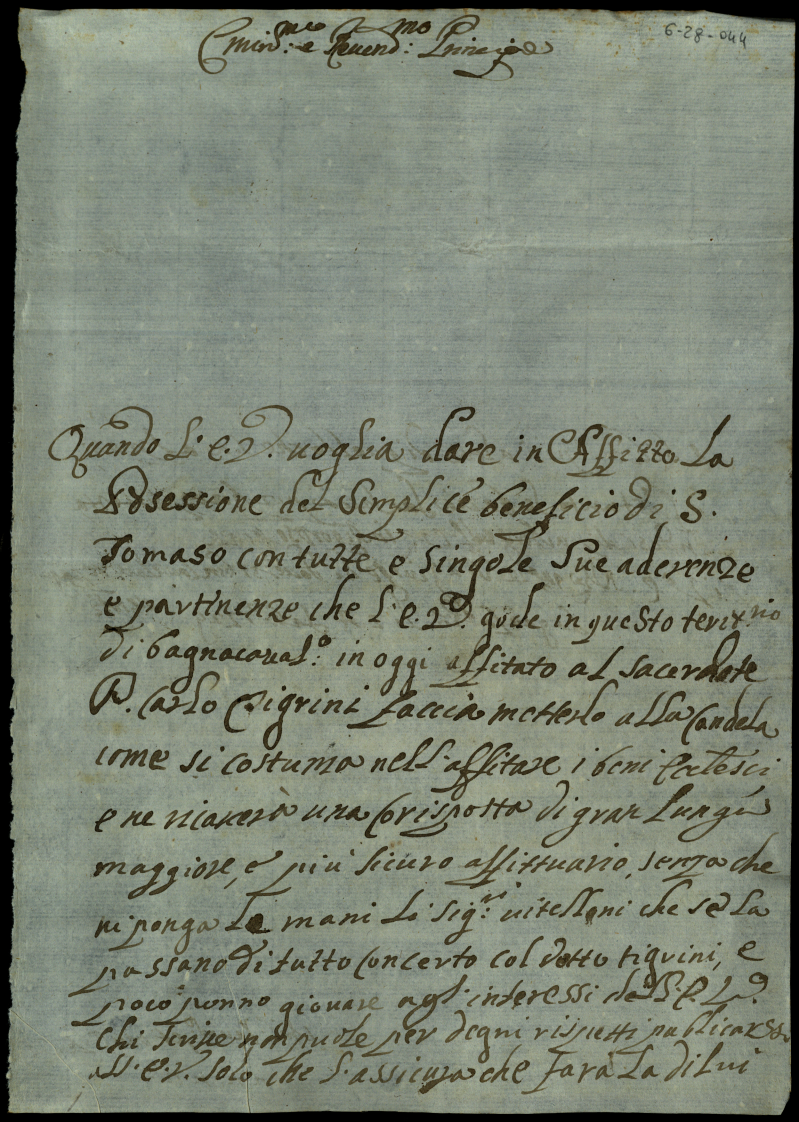 6-28-044
Emin.mo e Reverend.mo Principe
Quando L'E.V. voglia dare in Affitto La
Posessione del Semplice beneficio di S.
Tomaso con tutte e singole Sue aderenze
e partinenze che l'E.V. gode in questo territ.rio
di bagnacaval.o in oggi affitato al sacerdote
D. Carlo Tigrini faccia metterlo alla Candela
come si costuma nell'affitare i beni Eclesci
e ne ricaverà una Corisposta di gran Lunga
maggiore, e più sicuro affittuario, senza che
vi ponga Le mani li sig.ri vitelloni che se la
passano di tutto Concerto col detto tigrini, e
poco ponno giovare agl'interessi dell'E.V.
Chi scrive non puole per degni rispetti publicarsi
all'E.V. solo che l'assicura che farà La di lui